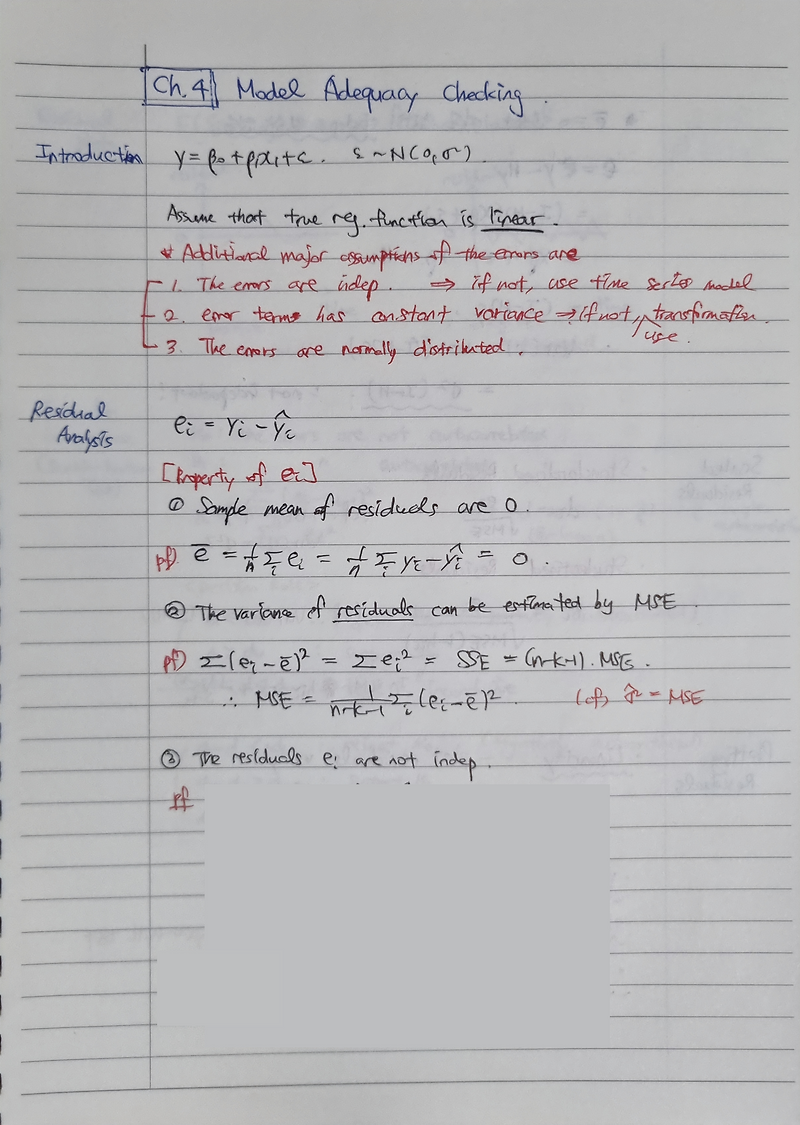 Ch.4 Model Adequacy Checking.
Introduction Y = β₀ + β₁x₁ + ε. ε ~ N(0, σ²).
Assume that true reg. function is linear.
* Additional major assumptions of the errors are
1. The errors are indep. ⇒ if not, use time series model
2. error terms has constant variance ⇒ if not, use transformation.
3. The errors are normally distributed.
Residual Analysis eᵢ = Yᵢ - Ŷᵢ
[Property of eᵢ]
① Sample mean of residuals are 0.
pf) ē = 1/n Σᵢ eᵢ = 1/n Σᵢ Yᵢ - Ŷᵢ = 0.
② The variance of residuals can be estimated by MSE.
pf) Σ(eᵢ - ē)² = Σeᵢ² = SSE = (n-k-1). MSE.
∴ MSE = 1/(n-k-1) Σᵢ (eᵢ - ē)². (cf) σ̂² = MSE
③ The residuals eᵢ are not indep.
pf